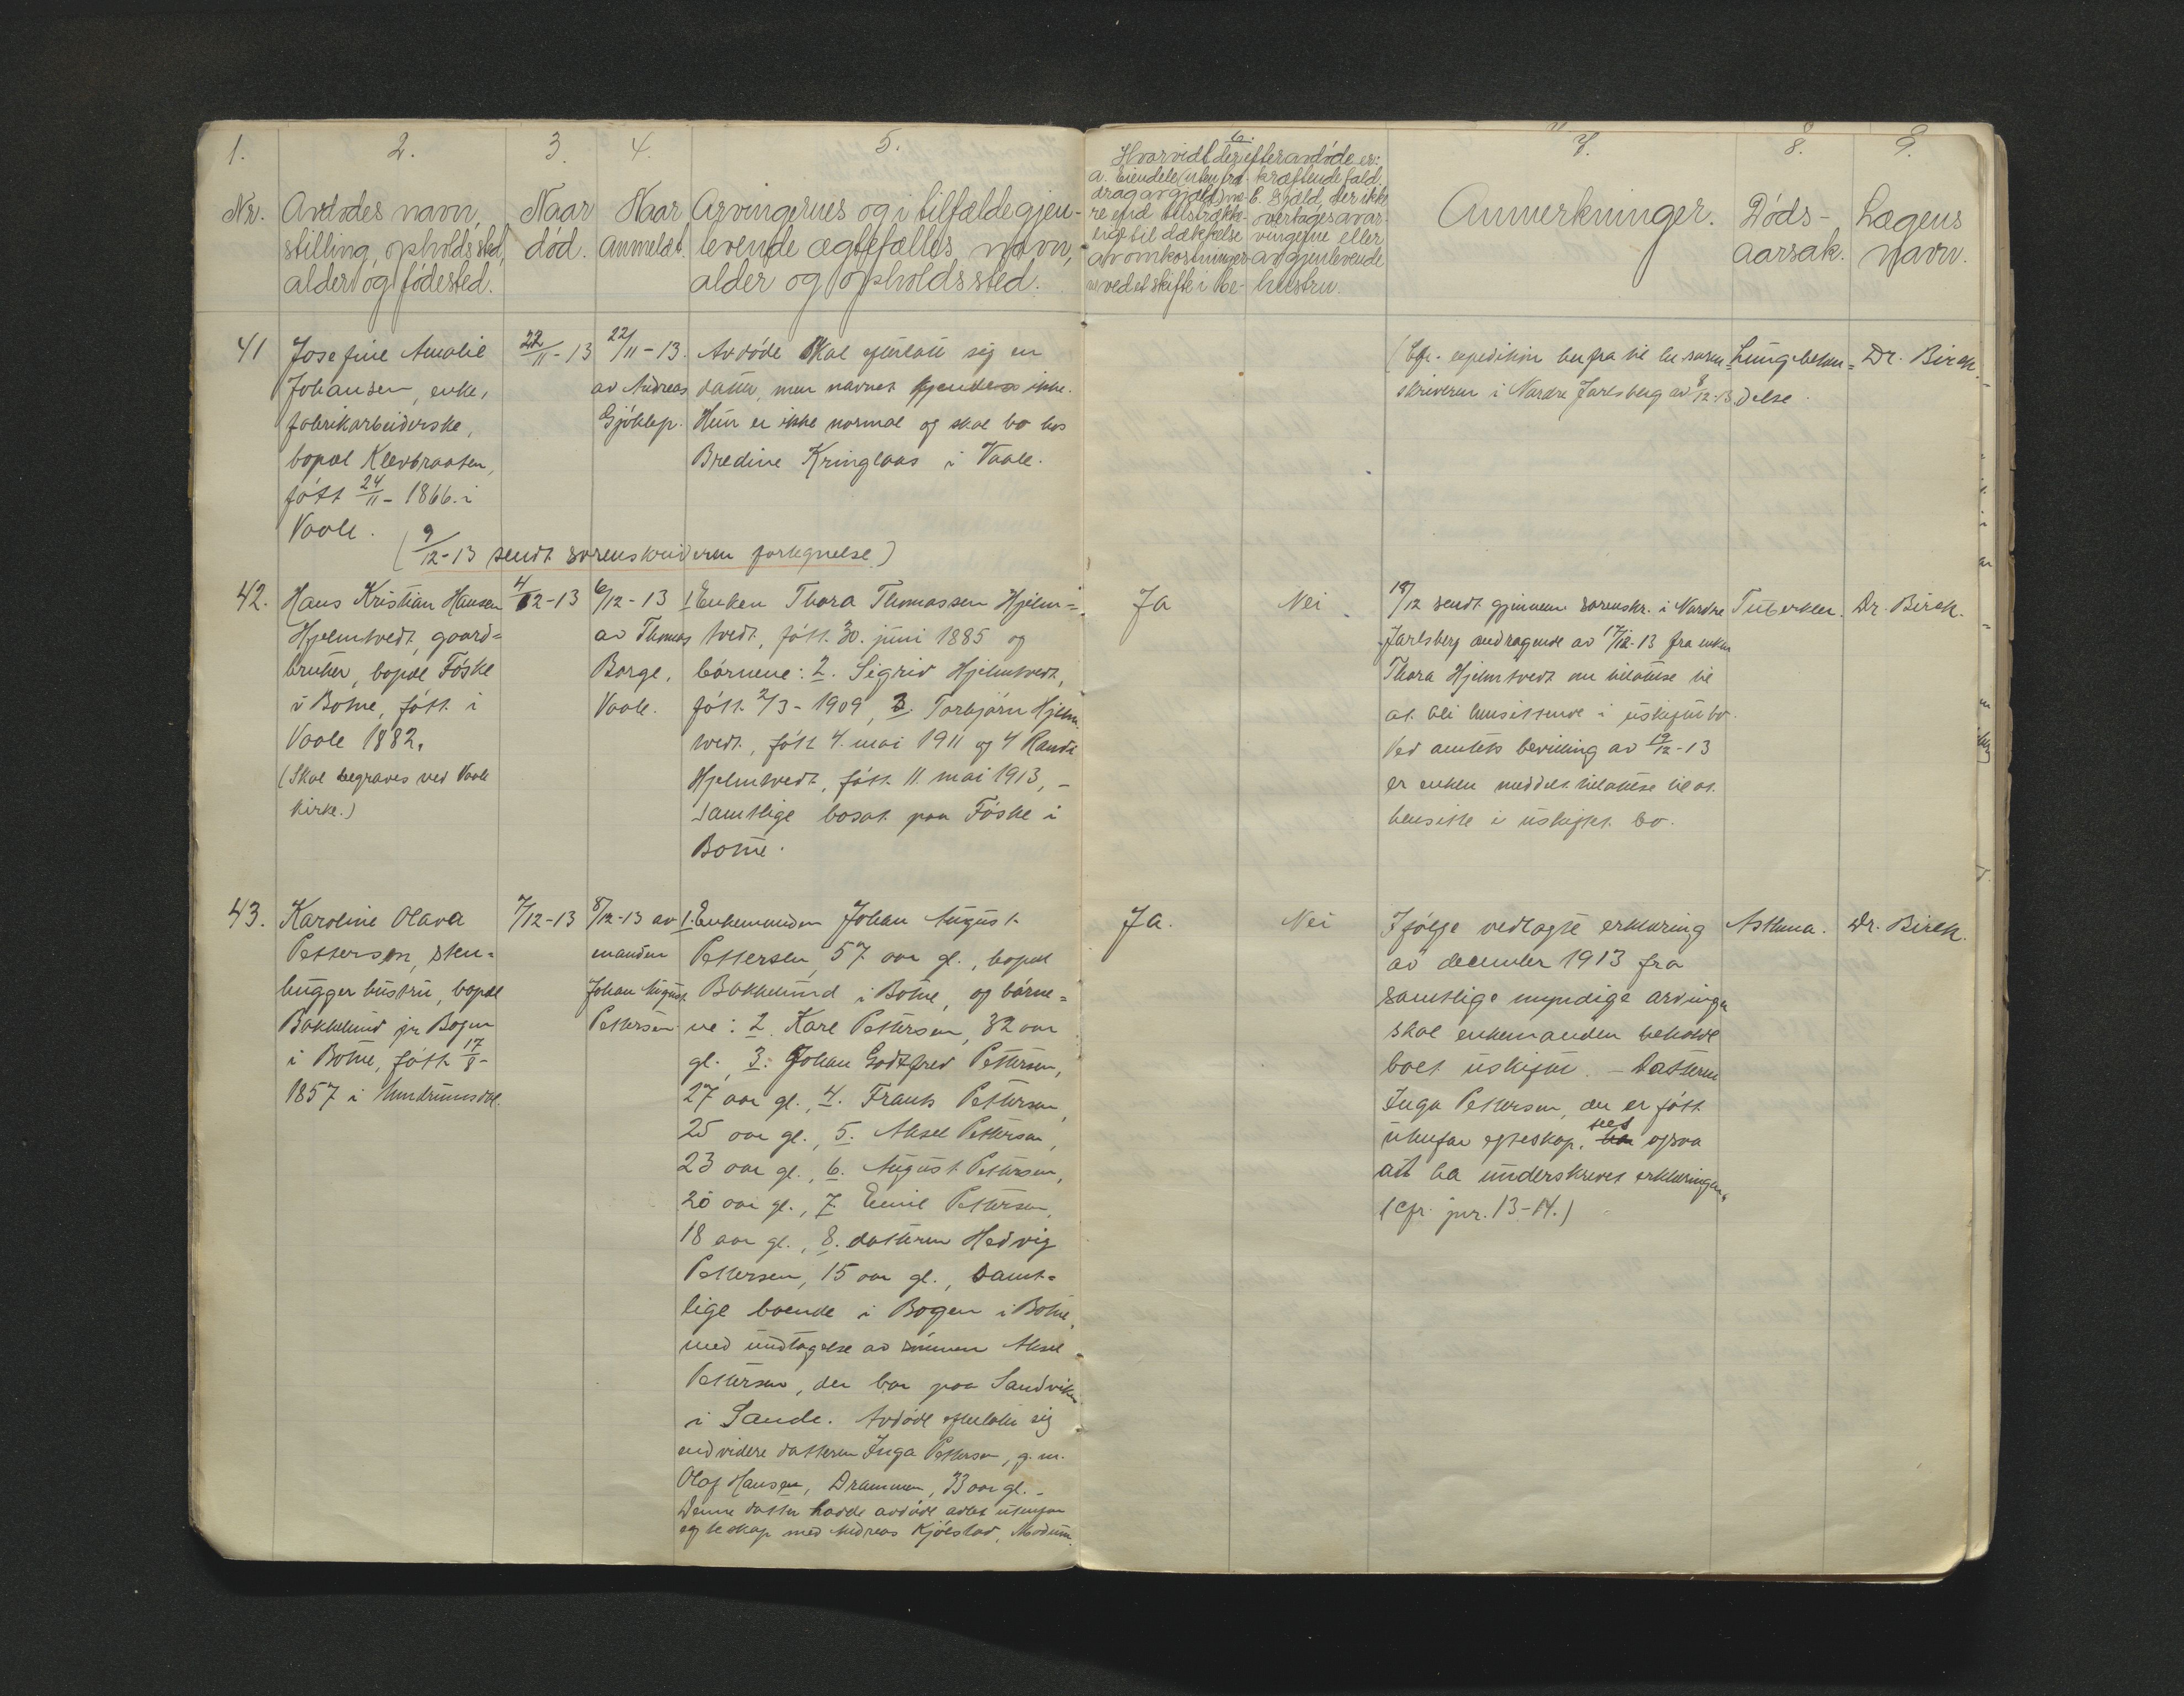 1.
2.
3.
4.
5.
6.
7.
8.
9.
Nr.
Avdødes navn,
stilling, opholdssted,
alder og fødested.
Naar
død.
Naar
anmeldt.
Arvingernes og i tilfælde gjen-
levende ægtefælles navn,
alder og opholdssted.
Hvorvidt der efter avdøde er:
a. Eiendele (uten fra-
drag av gjæld) me-
re end tilstrække-
lige til dækkelse
av omkostninger-
ne ved et skifte i be-
kræftende fald,
b. Gjæld, der ikke
overtages av ar-
vingerne eller
av gjenlevende
hustru.
Anmerkninger.
Døds-
aarsak.
Lægens
navn.
41
Josefine Amalie
Johansen, enke,
fabrikarbeiderske,
bopæl Klevbraaten,
født 24/11 - 1866 i
Vaale.
22/11 - 13
22/11 - 13.
av Andreas
Gjøklep.
Avdøde skal efterlate sig en
datter, men navnet kjendes ikke.
Hun er ikke normal og skal bo hos
Bredine Kringlaas i Vaale.
(Cfr. expedition herfra til hr. soren-
skriveren i Nordre Jarlsberg av 8/12-13
Lungebetæn-
delse.
Dr. Birch.
(9/12-13 sendt sorenskriveren fortegnelse)
42.
Hans Kristian Hansen
Hjelmtvedt, gaard-
bruker, bopæl Føske
i Botne, født i
Vaale 1882.
(Skal begraves ved Vaale
kirke.)
4/12-13
6/12-13
av Thomas
Borge,
Vaale.
1 Enken Thora Thomassen Hjelm-
tvedt, født 30. juni 1885 og
børnene: 2. Sigrid Hjelmtvedt,
født 2/3 - 1909, 3. Torbjørn Hjelm
tvedt, født 4. mai 1911 og 4 Randi
Hjelmtvedt, født 11. mai 1913, -
samtlige bosat paa Føske i
Botne.
Ja
Nei
18/12 sendt gjennem sorenskr. i Nordre
Jarlsberg andragende av 17/12-13 fra enken
Thora Hjelmtvedt om tilatelse til
at bli hensittende i uskiftet bo.
Ved amtets bevilling av 19/12-13
er enken meddelt tilatelse til at
hensitte i uskiftet bo.
Tuberkler.
Dr. Birch.
43.
Karoline Olava
Pettersen, sten-
hugger hustru, bopæl
Bakkelund pr Bogen
i Botne, født 17/8 -
1857 i Undrumsdal.
7/12-13
8/12-13 av
manden
Johan August
Pettersen
1. Enkemanden Johan August
Pettersen, 57 aar gl., bopæl
Bakkelund i Botne, og børne-
ne: 2. Karl Pettersen, 32 aar
gl., 3. Johan Godtfred Pettersen,
27 aar gl., 4. Frants Pettersen,
25 aar gl., 5. Aksel Pettersen,
23 aar gl., 6. August Pettersen,
20 aar gl., 7. Emil Pettersen,
18 aar gl., 8. datteren Hedvig
Pettersen, 15 aar gl., samt-
lige boende i Bogen i Botne,
med undtagelse av sønnen Aksel
Pettersen, der bor paa Sandviken
i Sande. Avdøde efterlater sig
endvidere datteren Inga Pettersen, g. m.
Olaf Hansen, Drammen, 33 aar gl. -
Denne datter hadde avdøde avlet utenfor
egteskap med Andreas Kjølstad, Modum.
Ja.
Nei
Ifølge vedlagte erklæring
av december 1913 fra
samtlige myndige arvinger
skal enkemanden beholde
boet uskiftet. - Datteren
Inga Pettersen, der er født
utenfor egteskap, sees ogsaa
att ha underskrevet erklæringen.
(cfr. jnr. 13-14.)
Asthma.
Dr. Birch.